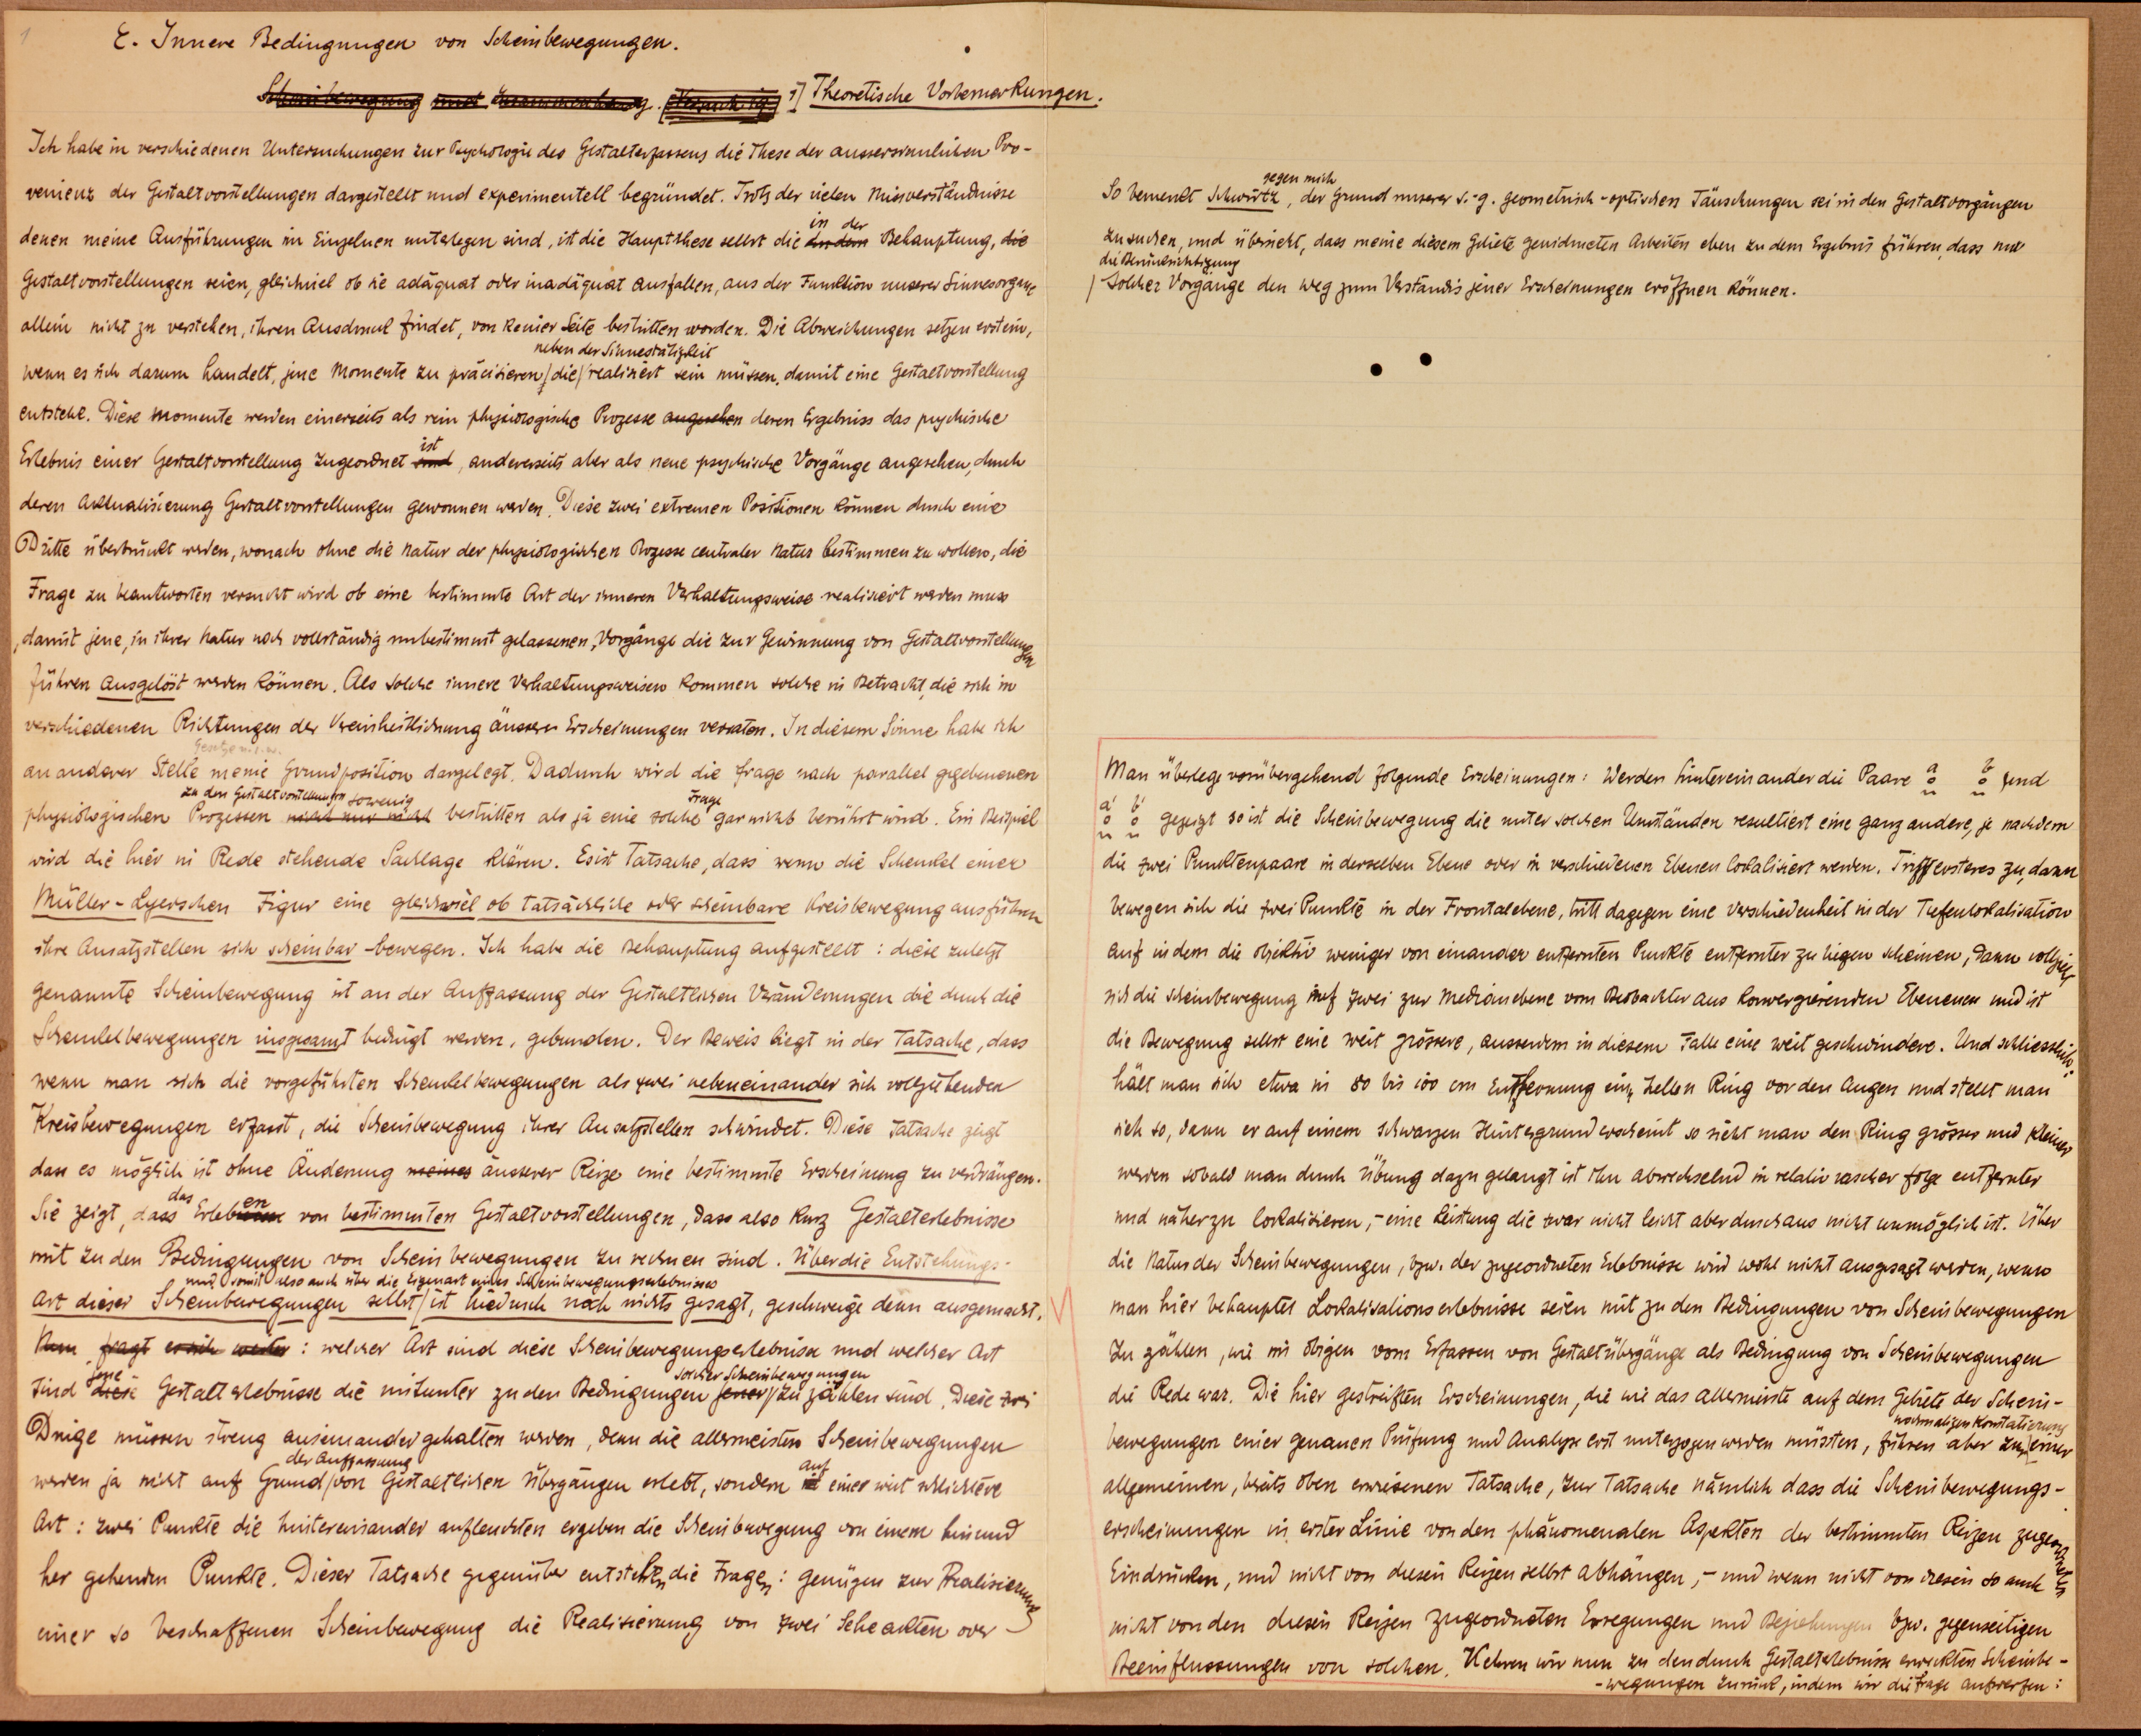 1
E. Innere Bedingungen von Scheinbewegungen.
Scheinbewegung und Zusammenhang. [Versuch 19] 1] Theoretische Vorbemerkungen.
Ich habe in verschiedenen Untersuchungen zur Psychologie des Gestalterfassens die These der aussersinnlichen Pro-
venienz der Gestaltvorstellungen dargestellt und experimentell begründet. Trotz der vielen Missverständnisse
in der
denen meine Ausführungen im Einzelnen unterlegen sind, ist die Hauptthese selbst die in dem Behauptung, die
Gestaltvorstellungen seien, gleichviel ob sie adäquat oder inadäquat ausfallen, aus der Funktion unserer Sinnesorgane
allein nicht zu verstehen, ihren Ausdruck findet, von keiner Seite bestritten worden. Die Abweichungen setzen erst ein,
neben der Sinnestätigkeit
wenn es sich darum handelt, jene Momente zu präcisieren, die realisiert sein müssen, damit eine Gestaltvorstellung
entstehe. Diese Momente werden einerseits als rein physiologische Prozesse angesehen deren Ergebniss das psychische
ist
Erlebnis einer Gestaltvorstellung zugeordnet sind, andererseits aber als neue psychische Vorgänge angesehen, durch
deren Aktualisierung Gestaltvorstellungen gewonnen werden. Diese zwei extremen Positionen können durch eine
Dritte überbrückt werden, wonach ohne die Natur der physiologischen Prozesse centraler Natur bestimmen zu wollen, die
Frage zu beantworten versucht wird ob eine bestimmte Art der inneren Verhaltungsweise realisiert werden muss
, damit jene, in ihrer Natur noch vollständig unbestimmt gelassenen, Vorgänge die zur Gewinnung von Gestaltvorstellungen
führen ausgelöst werden können. Als solche innere Verhaltungsweisen kommen solche in Betracht, die sich in
verschiedenen Richtungen der Vereinheitlichung äusserer Erscheinungen verraten. In diesem Sinne habe ich
Gesetze u.s.w.
an anderer Stelle meine Grundposition dargelegt. Dadurch wird die Frage nach parallel gegebenenen
zu den Gestaltvorstellungen sowenig Frage
physiologischen Prozessen nicht nur nicht bestritten als ja eine solche gar nicht berührt wird. Ein Beispiel
wird die hier in Rede stehende Sachlage klären. Es ist Tatsache, dass wenn die Schenkel einer
Müller-Lyerschen Figur eine gleichviel ob tatsächliche oder scheinbare Kreisbewegung ausführen
ihre Ansatzstellen sich scheinbar-bewegen. Ich habe die Behauptung aufgestellt: diese zuletzt
genannte Scheinbewegung ist an der Auffassung der Gestaltlichen Veränderungen die durch die
Schenkelbewegungen insgesamt bedingt werden, gebunden. Der Beweis liegt in der Tatsache, dass
wenn man sich die vorgeführten Schenkelbewegungen als zwei nebeneinander sich vollziehenden
Kreisbewegungen erfasst, die Scheinbewegung ihrer Ansatzstellen schwindet. Diese Tatsache zeigt
dass es möglich ist ohne Änderung meines äusserer Reize eine bestimmte Erscheinung zu verdrängen.
das en
Sie zeigt, dass Erlebnisse von bestimmten Gestaltvorstellungen, dass also kurz Gestalterlebnisse
mit zu den Bedingungen von Scheinbewegungen zu rechnen sind. Über die Entstehungs-
und somit also auch über die Eigenart eines Scheinbewegungserlebnisses
art dieser Scheinbewegungen selbst ist hiedurch noch nichts gesagt, geschweige denn ausgemacht.
Nun fragt es sich weiter: welcher Art sind diese Scheinbewegungserlebnisse und welcher Art
jene solcher Scheinbewegungen
sind diese Gestalterlebnisse die mitunter zu den Bedingungen jener zu zählen sind. Diese zwei
Dinge müssen streng auseinander gehalten werden, denn die allermeisten Scheinbewegungen
der Auffassung auf
werden ja nicht auf Grund von Gestaltlichen Übergängen erlebt, sondern in einer weit schlichtere
Art: zwei Punkte die hintereinander aufleuchten ergeben die Scheinbewegung von einem hin und
her gehenden Punkte. Dieser Tatsache gegenüber entstehen die Fragen: genügen zur Realisierung
einer so beschaffenen Scheinbewegung die Realisierung von zwei Sehe akten oder
gegen mich
So bemerkt Schwirtz, der Grund unserer s.-g. geometrisch-optischen Täuschungen sei in den Gestaltvorgängen
zu suchen, und übersieht, dass meine diesem Gebiete gewidmeten Arbeiten eben zu dem Ergebnis führen, dass nur
die Berücksichtigung
solcher Vorgänge den Weg zum Verständis jener Erscheinungen eröffnen können.
Man überlege vorübergehend folgende Erscheinungen: Werden hintereinander die Paare a b und
a' b' gezeigt so ist die Scheinbewegung die unter solchen Umständen resultiert eine ganz andere, je nachdem
die zwei Punktenpaare in derselben Ebene oder in verschiedenen Ebenen lokalisiert werden. Trifft ersteres zu, dann
bewegen sich die zwei Punkte in der Frontalebene, tritt dagegen eine Verschiedenheit in der Tiefenlokalisation
auf indem die objektiv weniger von einander entfernten Punkte entfernter zu liegen scheinen, dann vollzieht
sich die Scheinbewegung auf zwei zur Medianebene vom Beobachter aus konvergierenden Ebenen und ist
die Bewegung selbst eine weit grössere, ausserdem in diesem Falle eine weit geschwindere. Und schliesslich:
hält man sich etwa in 80 bis 100 cm Entfernung ein hellen Ring vor den Augen und stellt man
sich so, dann er auf einem schwarzen Hintergrund erscheint so sieht man den Ring grösser und kleiner
werden sobald man durch Übung dazu gelangt ist ihn abwechselnd in relativ rascher Folge entfernter
und näher zu lokalisieren, - eine Leistung die zwar nicht leicht aber durchaus nicht unmöglich ist. Über
die Natur der Scheinbewegungen, bzw. der zugeordneten Erlebnisse wird wohl nicht ausgesagt werden, wenn
man hier behauptet Lokalisationserlebnisse seien mit zu den Bedingungen von Scheinbewegungen
zu zählen, wie im obigen vom Erfassen von Gestaltübergänge als Bedingung von Scheinbewegungen
die Rede war. Die hier gestreiften Erscheinungen, die wie das allermeiste auf dem Gebiete der Schein-
nochmaligen Konstatierung
bewegungen einer genauen Prüfung und Analyse erst unterzogen werden müssten, führen aber zur einer
allgemeinen, bereits oben erwiesenen Tatsache, zur Tatsache nämlich dass die Scheinbewegungs-
erscheinungen in erster Linie von den phänomenalen Aspekten der bestimmten Reizen zugeordneten
Eindrücken, und nicht von diesen Reizen selbst abhängen, - und wenn nicht von diesen so auch
nicht von den diesen Reizen zugeordneten Erregungen und Beziehungen bzw. gegenseitigen
Beeinflussungen von solchen. Kehren wir nun zu den durch Gestalterlebnisse erweckten Scheinbe-
-wegungen zurück, indem wir die Frage aufwerfen: